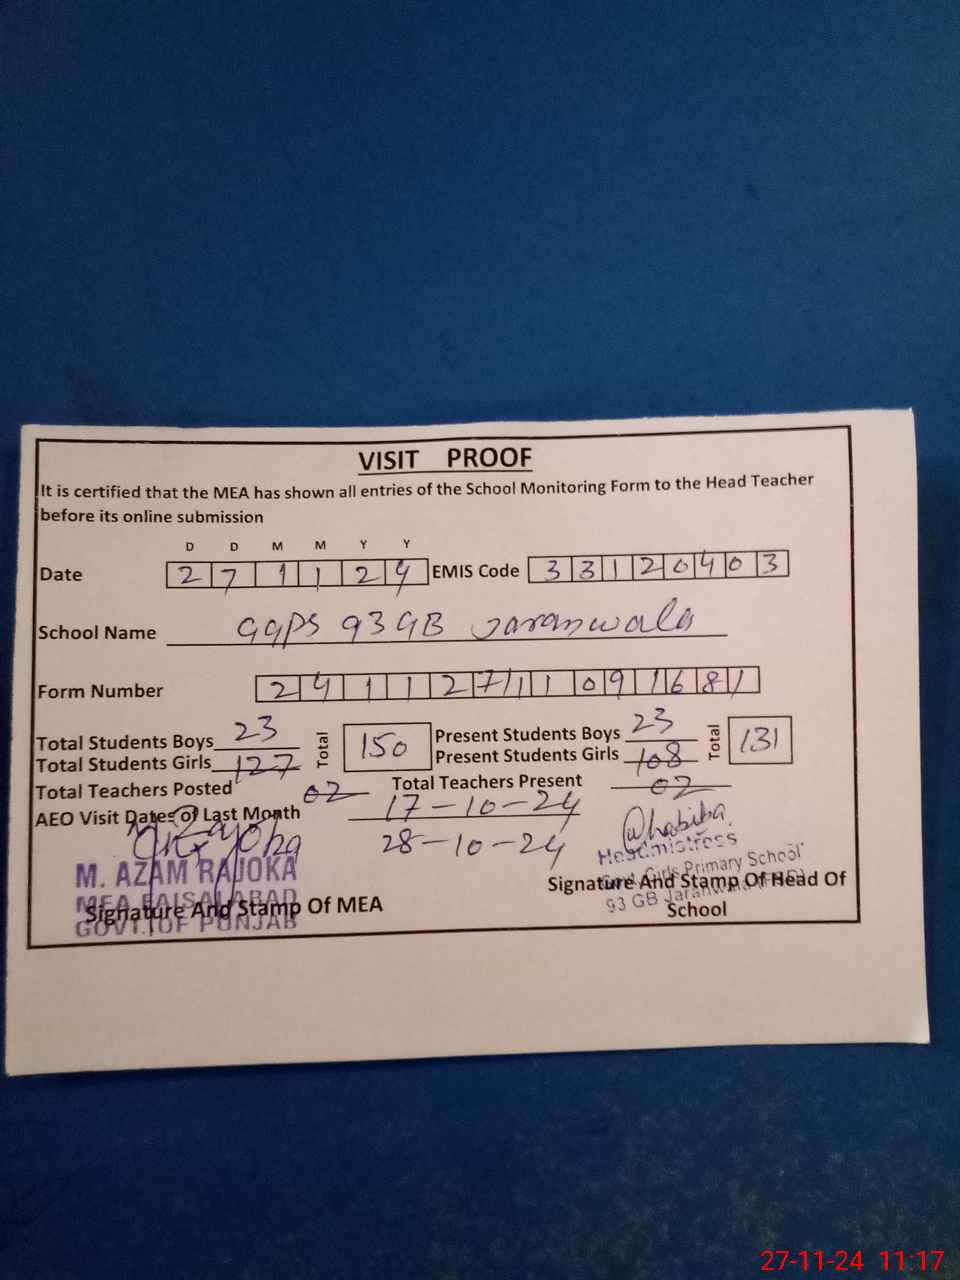 VISIT PROOF
It is certified that the MEA has shown all entries of the School Monitoring Form to the Head Teacher
before its online submission
D D M M Y Y
Date 2 7 1 1 2 4 EMIS Code 3 3 1 2 0 4 0 3
School Name GGPS 93 GB Jaranwala
Form Number 2 4 1 1 2 7 1 1 0 9 1 6 8 1
Total Students Boys 23 Total 150 Present Students Boys 23 Total 131
Total Students Girls 127 Present Students Girls 108
Total Teachers Posted 02 Total Teachers Present 02
AEO Visit Dates of Last Month 17-10-24
28-10-24
M. AZAM RAJOKA
MEA FAISALABAD
GOVT. OF PUNJAB
Signature And Stamp Of MEA
Habiba
Headmistress
Govt. Girls Primary School
93 GB Jaranwala
Signature And Stamp Of Head Of
School
27-11-24 11:17